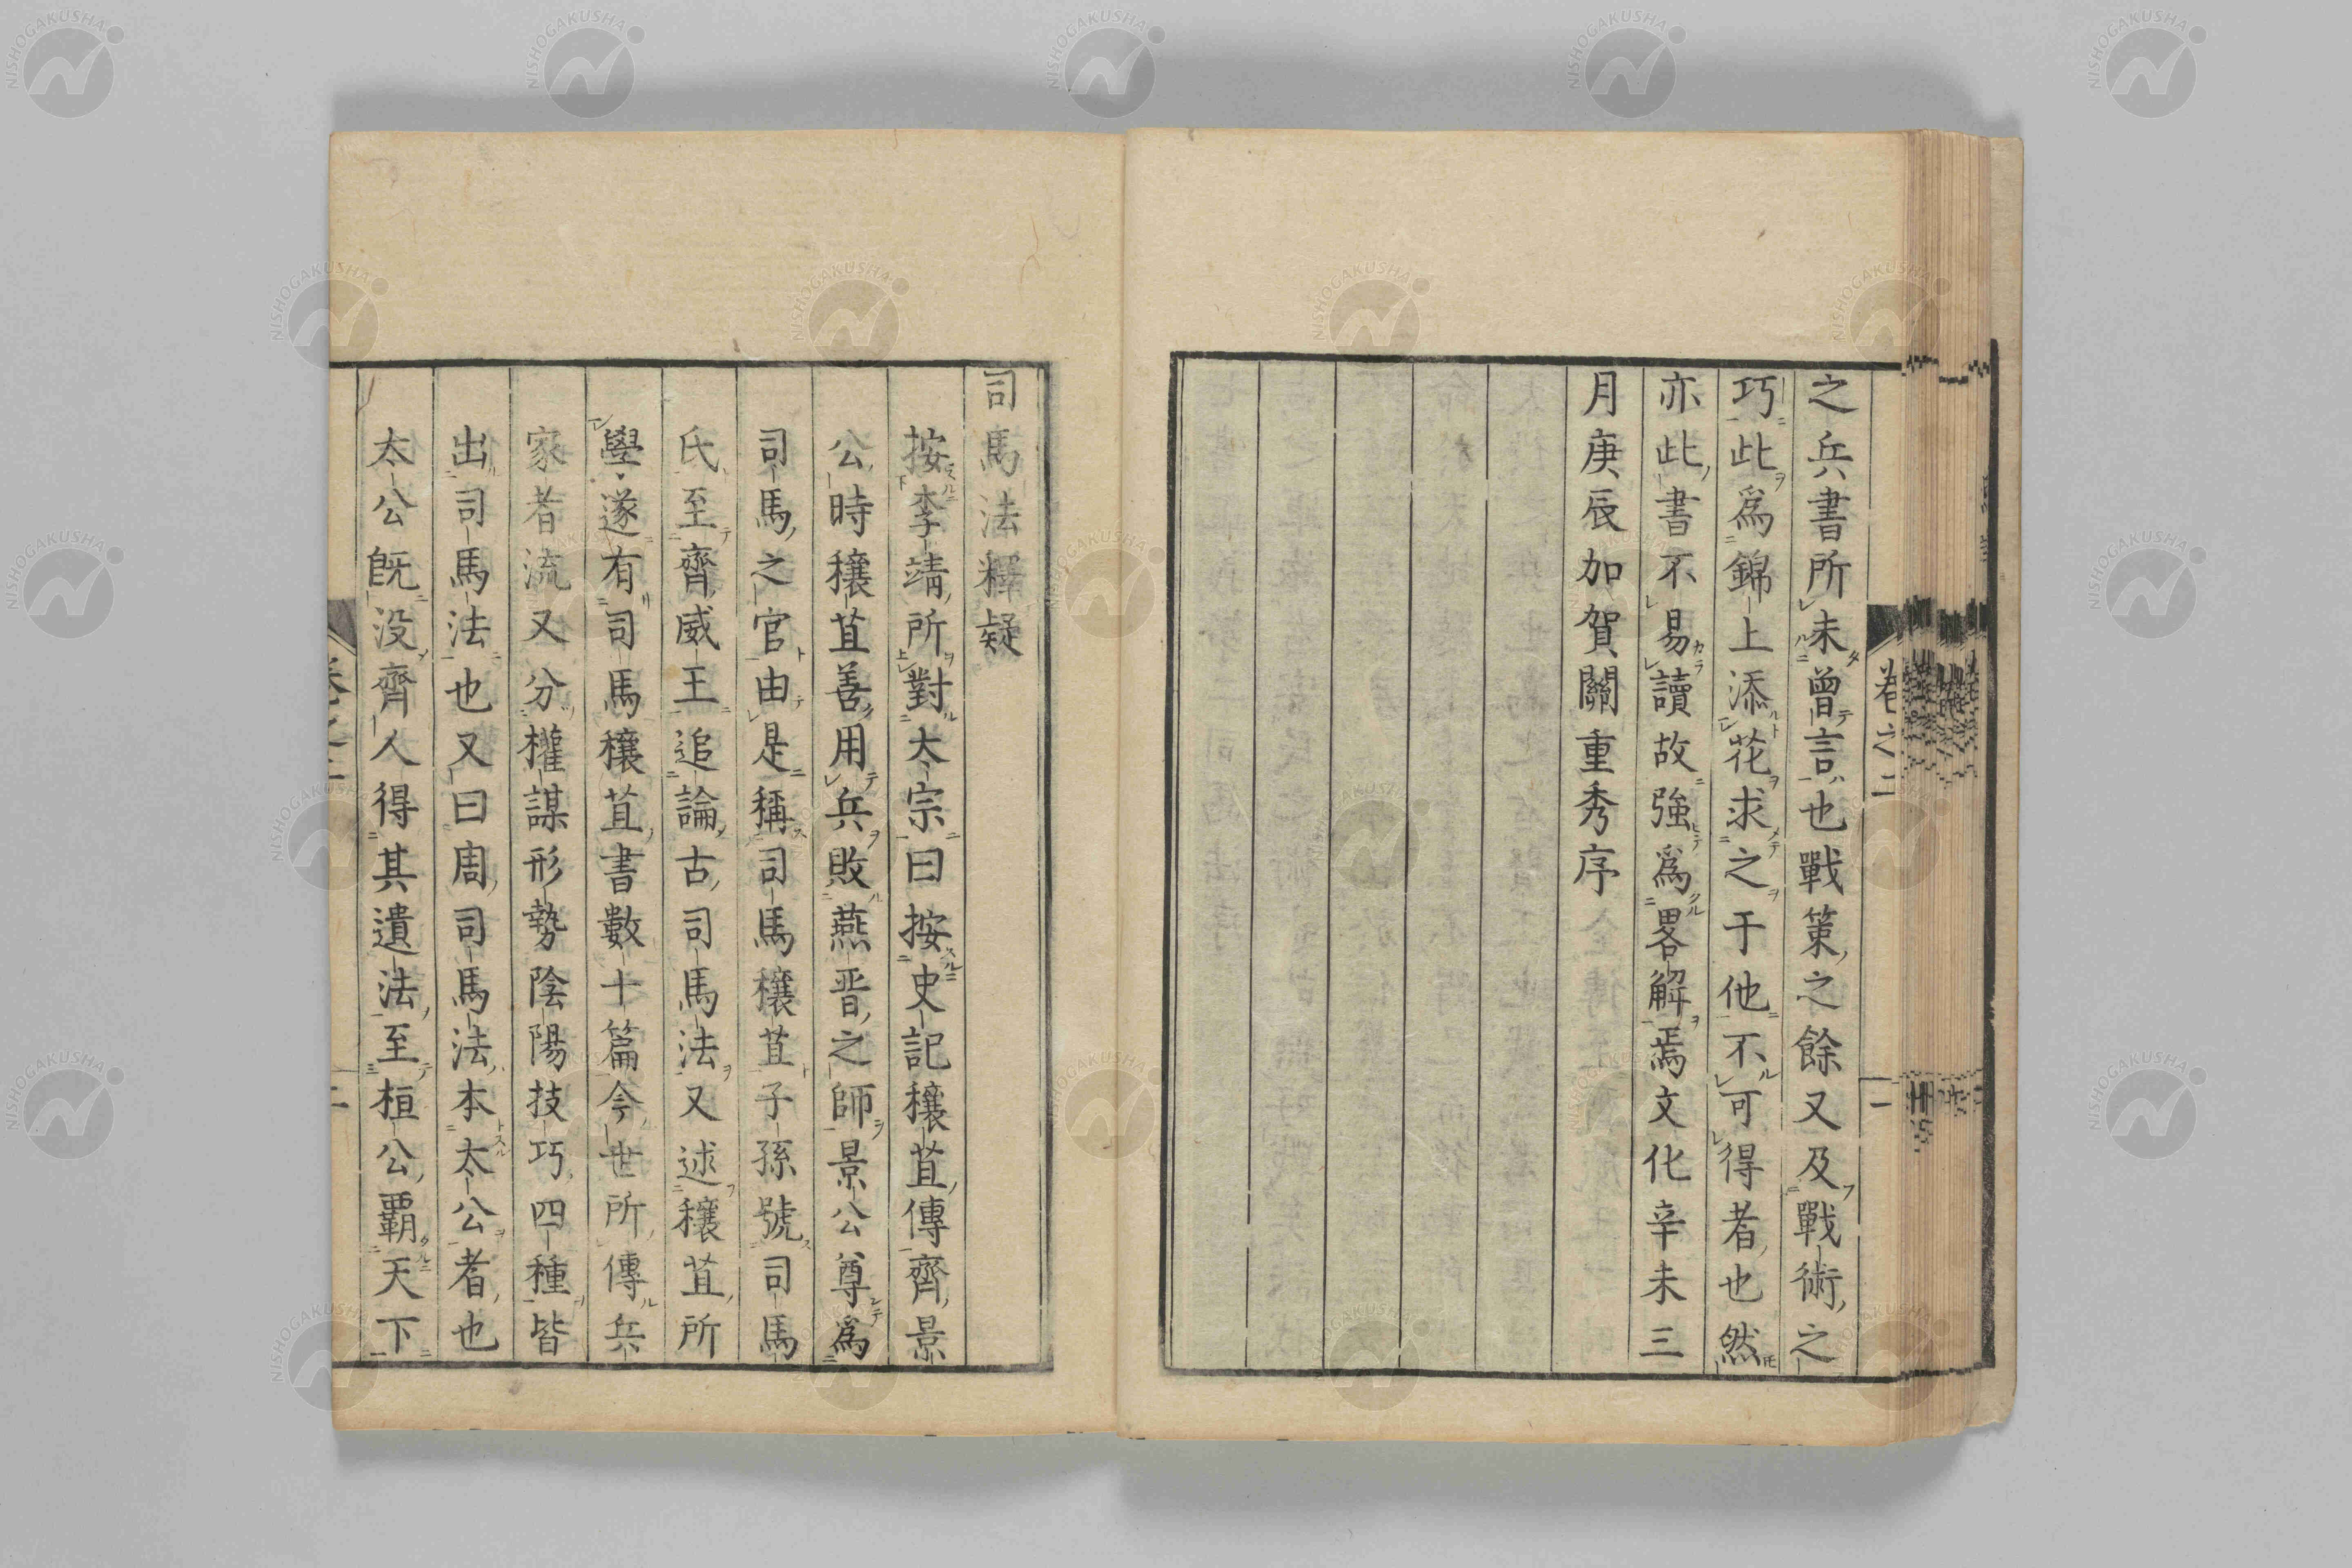 之兵書所未曾言也戰策之餘又及戰術之
巧此爲錦上添花求之于他不可得者也然
亦此書不易讀故強爲畧解焉文化辛未三
月庚辰加賀關重秀序
卷之二
一
司馬法釋疑
按李靖所對太宗曰按史記穰苴傳齊景
公時穰苴善用兵敗燕晋之師景公尊爲
司馬之官由是稱司馬穰苴子孫號司馬
氏至齊威王追論古司馬法又述穰苴所
學遂有司馬穰苴書數十篇今世所傳兵
家者流又分權謀形勢陰陽技巧四種皆
出司馬法也又曰周司馬法本太公者也
太公旣没齊人得其遺法至桓公霸天下
NISHOGAKUSHA